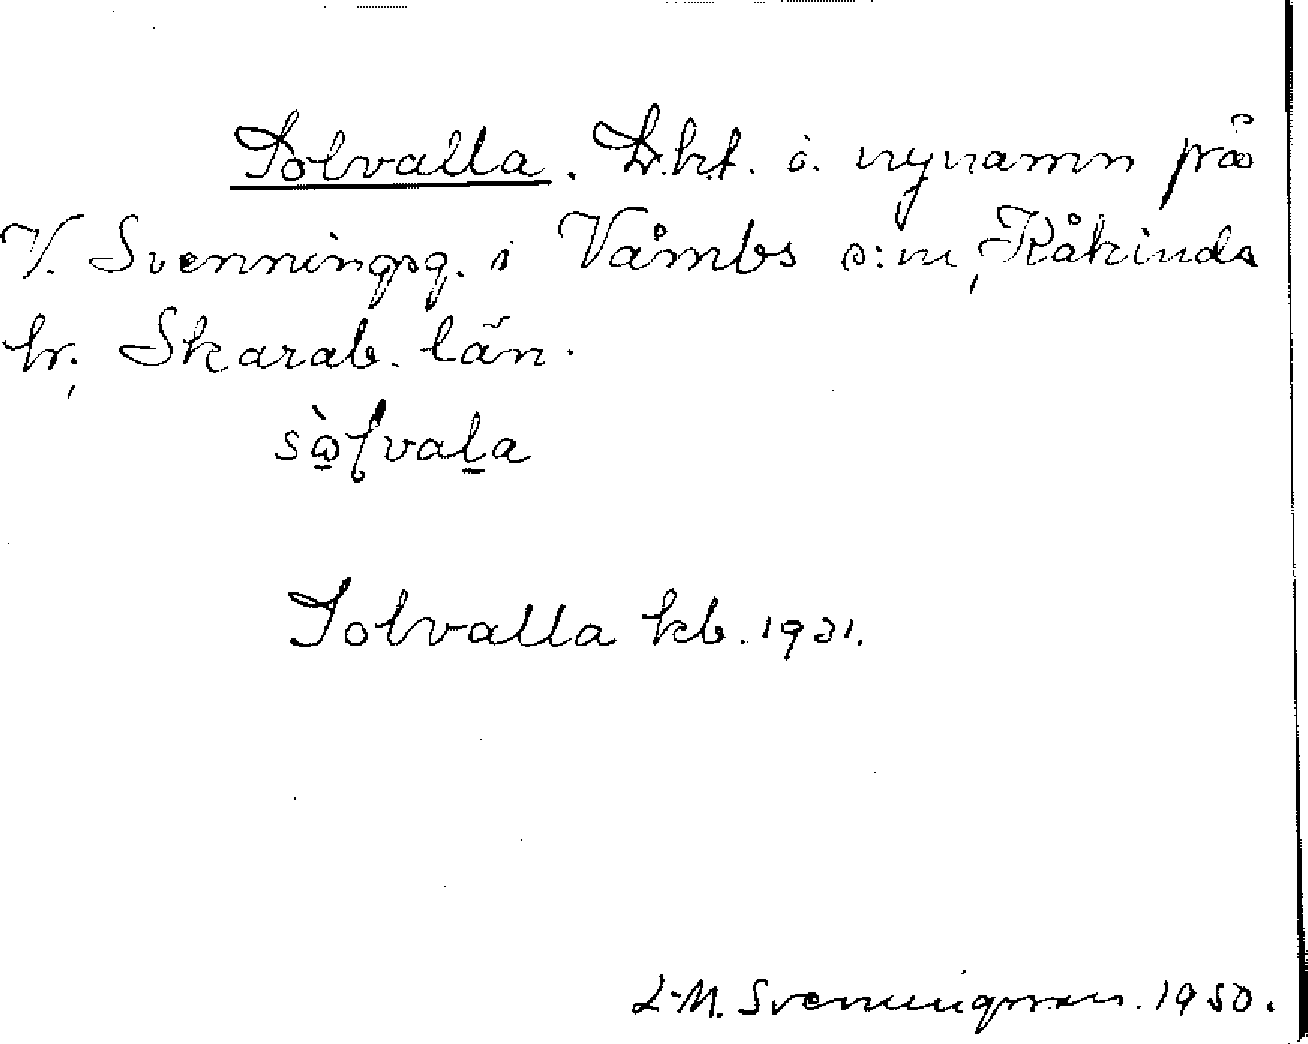 Solvalla. D.h.t. o. nynamn på
V. Svenningsg. i Våmbs s:n, Kåkinds
hr., Skarab. län.
Solvalla kb. 1931.
L-M. Svenningsson. 1950.